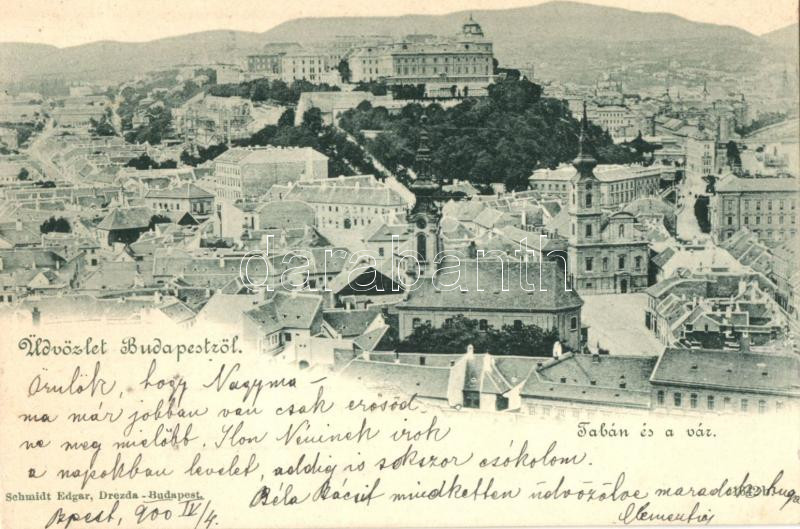 darabanth.com
Üdvözlet Budapestről.
Örülök, hogy Nagyma-
ma már jobban van csak erősöd-
ne meg mielőbb. Ilon Néninek irok
a napokban levelet, addig is sokszor csókolom.
Tabán és a vár.
Schmidt Edgar, Drezda - Budapest.
Béla Bácsit mindketten üdvözölve maradok
Bpest, 900 IV/4.
Clementin